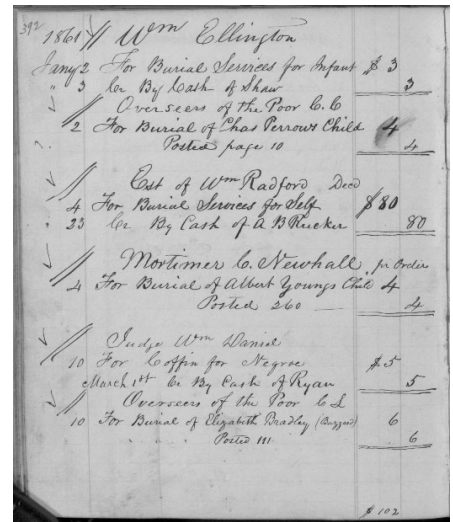 392
1861 // Wm Ellington
Jany 2 For Burial Services for Infant $ 3
" 3 Cr By Cash of Shaw 3
// Overseers of the Poor C. C
2 For Burial of Chas Perrows Child 4
Posted page 10 4
// Est of Wm Radford Decd
4 For Burial Services for Self $ 80
23 Cr By Cash of A B Rucker 80
// Mortimer C. Newhall pr Order
4 For Burial of Albert Youngs Child 4
Posted 260 — 4
// Judge Wm Daniel
10 For Coffin for Negroe $ 5
March 1st Cr By Cash of Ryan 5
// Overseers of the Poor C L
10 For Burial of Elizabeth Bradley (Buzzard) 6
Posted 111 6
$ 102